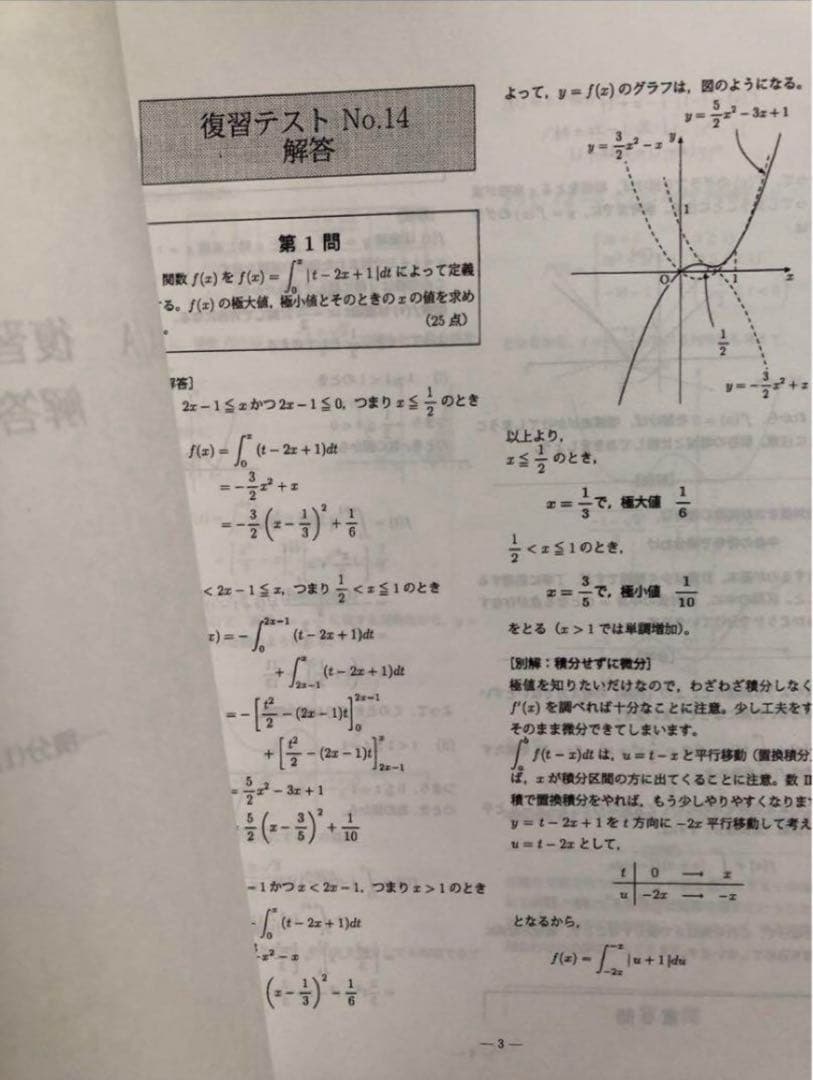 復習テスト No.14
解答
第1問
関数 f(x) を f(x) = ∫₀ˣ |t − 2x + 1|dt によって定義
る。f(x) の極大値,極小値とそのときの x の値を求め
。 (25点)
解答]
2x − 1 ≦ x かつ 2x − 1 ≦ 0, つまり x ≦ 1/2 のとき
f(x) = ∫₀ˣ (t − 2x + 1)dt
= −3/2 x² + x
= −3/2 (x − 1/3)² + 1/6
< 2x − 1 ≦ x, つまり 1/2 < x ≦ 1 のとき
x) = −∫₀²ˣ⁻¹ (t − 2x + 1)dt
+ ∫₂ₓ₋₁ˣ (t − 2x + 1)dt
= −[t²/2 − (2x − 1)t]₀²ˣ⁻¹
+ [t²/2 − (2x − 1)t]₂ₓ₋₁ˣ
= 5/2 x² − 3x + 1
5/2 (x − 3/5)² + 1/10
− 1 かつ x < 2x − 1, つまり x > 1 のとき
− ∫₀ˣ (t − 2x + 1)dt
x² − x
(x − 1/3)² − 1/6
よって, y = f(x) のグラフは, 図のようになる。
y = 5/2 x² − 3x + 1
y = 3/2 x² − x
y
1
O
1
x
1/2
y = −3/2 x² + x
以上より,
x ≦ 1/2 のとき,
x = 1/3 で, 極大値 1/6
1/2 < x ≦ 1 のとき,
x = 3/5 で, 極小値 1/10
をとる (x > 1 では単調増加)。
[別解:積分せずに微分]
極値を知りたいだけなので, わざわざ積分しなく
f′(x) を調べれば十分なことに注意。少し工夫をす
そのまま微分できてしまいます。
∫ₐᵇ f(t − x)dt は, u = t − x と平行移動 (置換積分
ば, x が積分区間の方に出てくることに注意。数 II
積で置換積分をやれば, もう少しやりやすくなりま
y = t − 2x + 1 を t 方向に −2x 平行移動して考え
u = t − 2x として,
t 0 → x
u −2x → −x
となるから,
f(x) = ∫₋₂ₓ⁻ˣ |u + 1|du
— 3 —